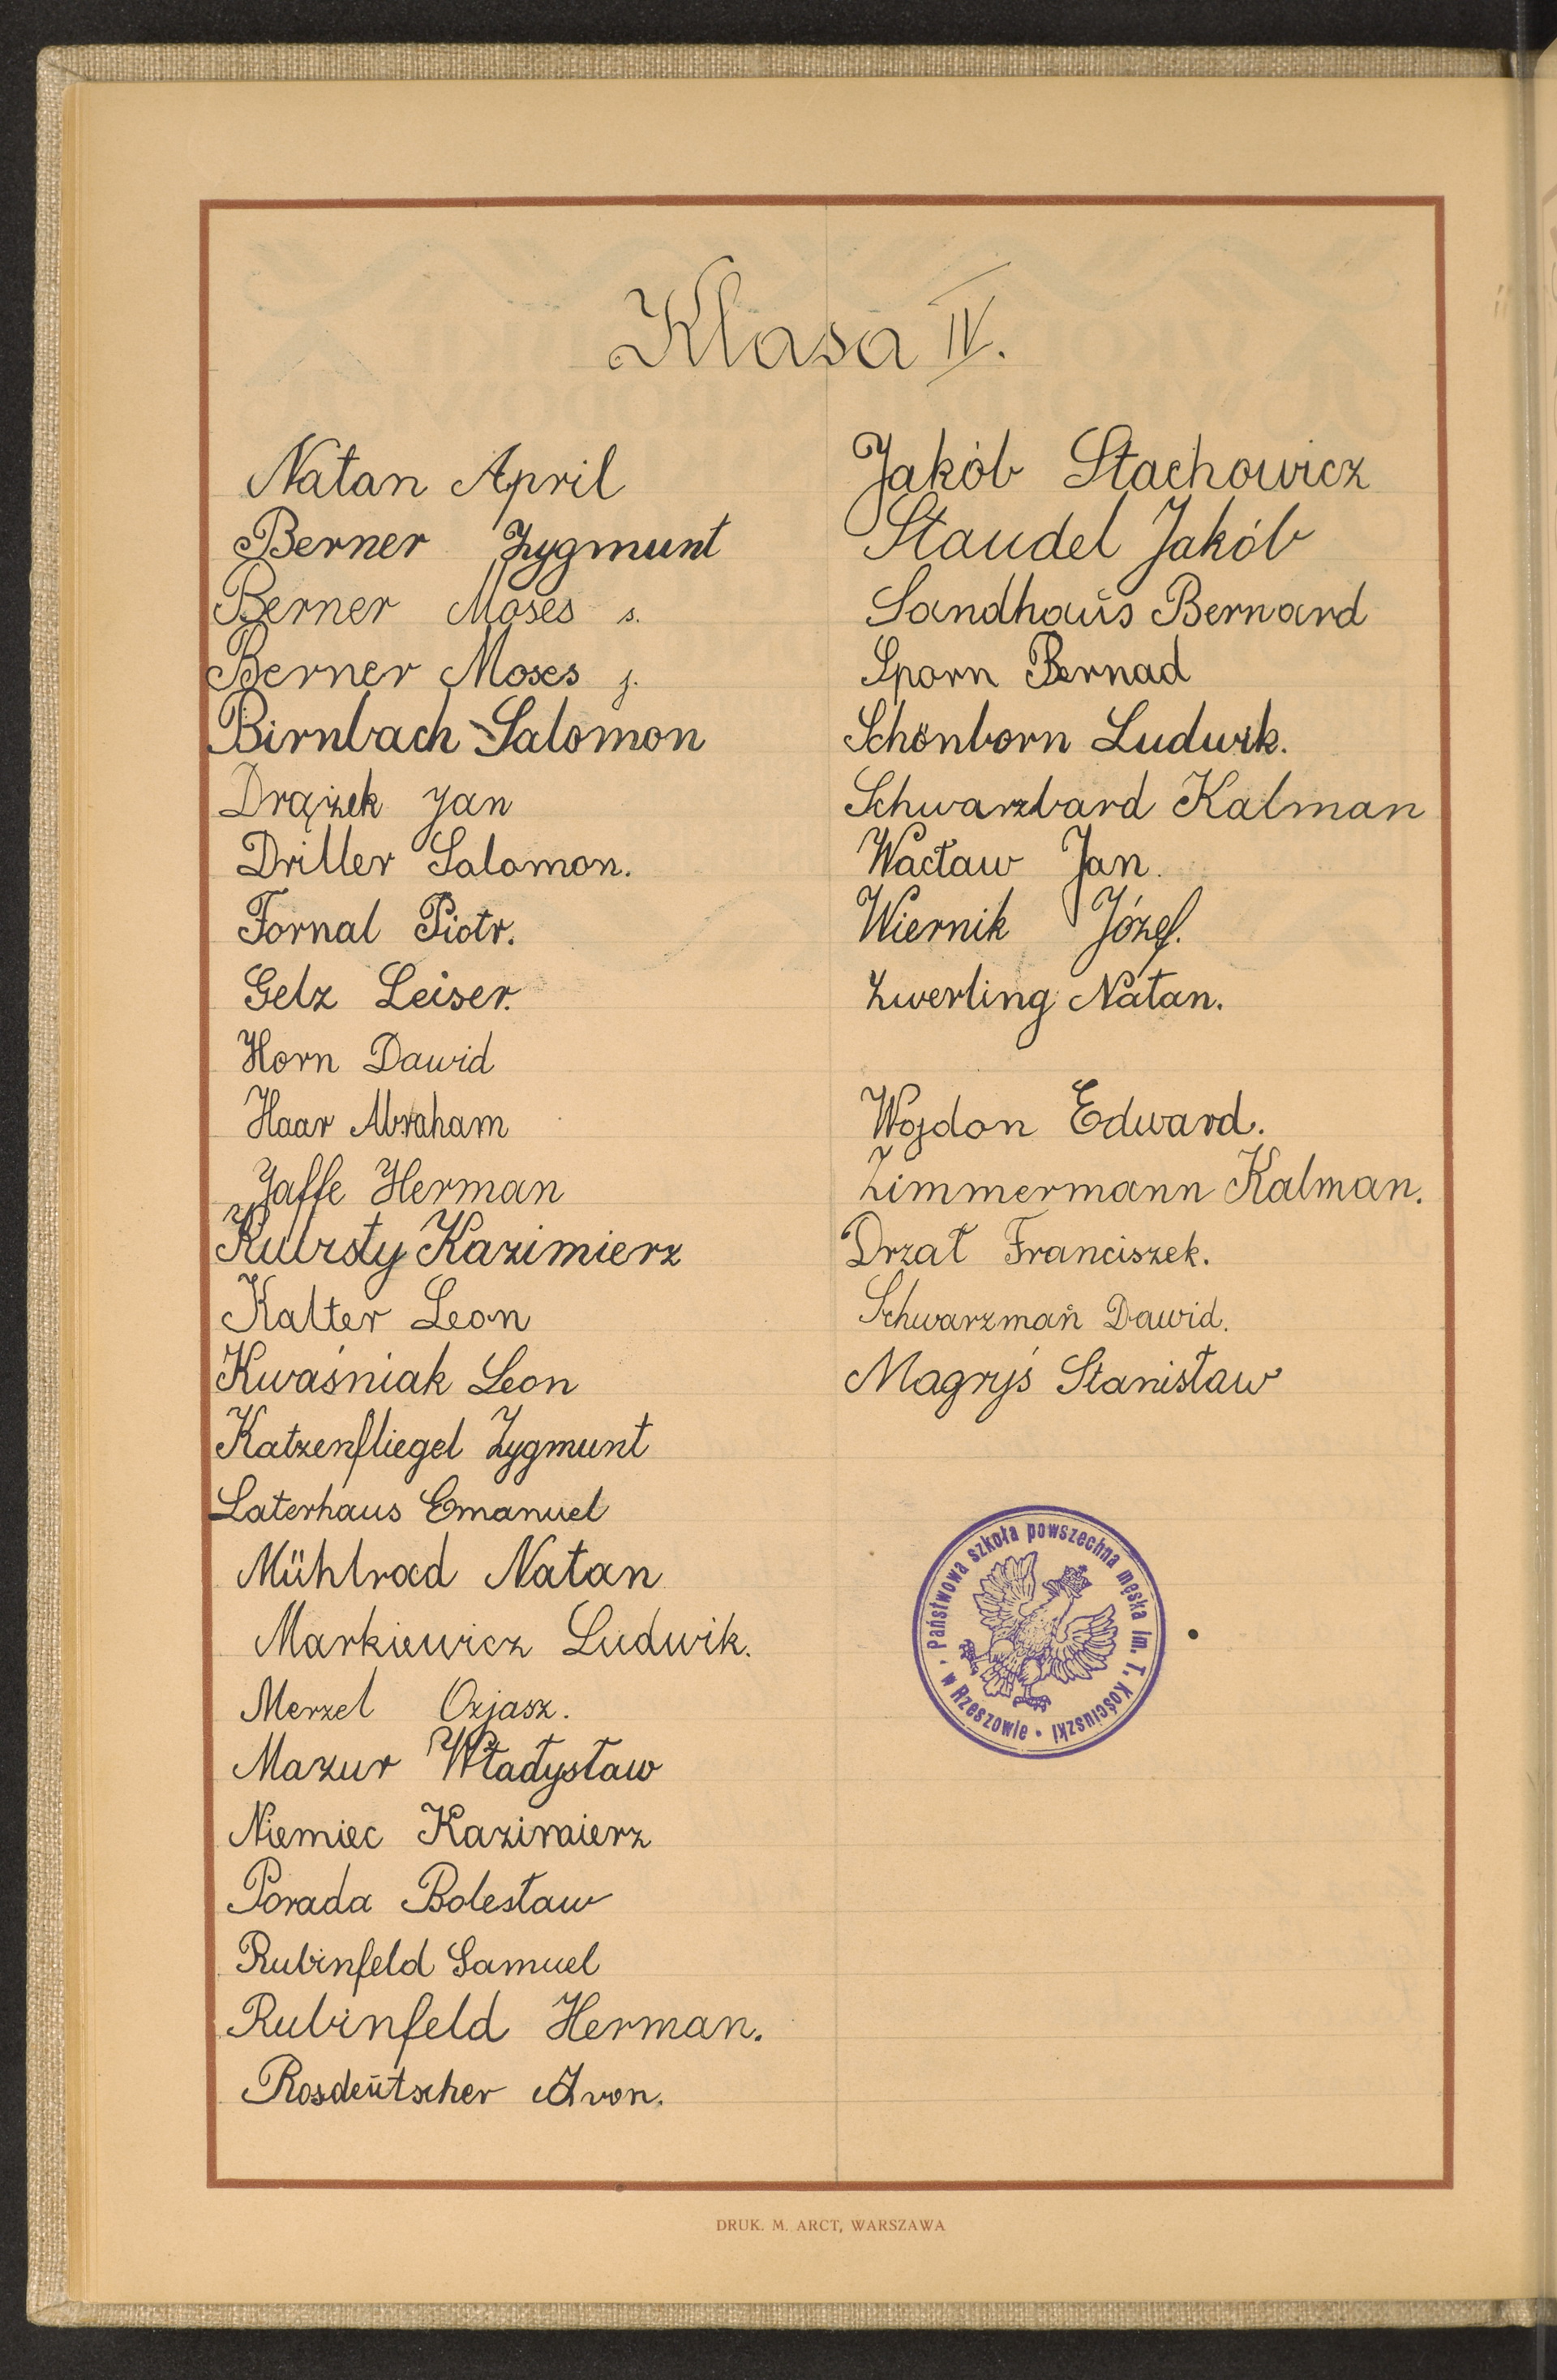 Klasa IV.
Natan April
Berner Zygmunt
Berner Moses s.
Berner Moses j.
Birnbach Salomon
Drążek Jan
Driller Salomon.
Fornal Piotr.
Gelz Leiser.
Horn Dawid
Haar Abraham
Jaffe Herman
Kazimierz
Kalter Leon
Kwaśniak Leon
Katzenfliegel Zygmunt
Laterhaus Emanuel
Mühlrad Natan
Markiewicz Ludwik.
Merzel Ozjasz.
Mazur Władysław
Niemiec Kazimierz
Porada Bolesław
Rubinfeld Samuel
Rubinfeld Herman.
Rosdeūtscher
Jakób Stachowicz
Staudel Jakób
Sandhaūs Bernard
Sporn Bernad
Schönborn Ludwik.
Schwarzbard Kalman
Wacław Jan.
Wiernik Józef.
Zwerling Natan.
Wojdon Edward.
Zimmermann Kalman.
Drzał Franciszek.
Schwarzmañ Dawid.
Magryś Stanisław
Państwowa szkoła powszechna męska im. T. Kościuszki • w Rzeszowie •
DRUK. M. ARCT, WARSZAWA